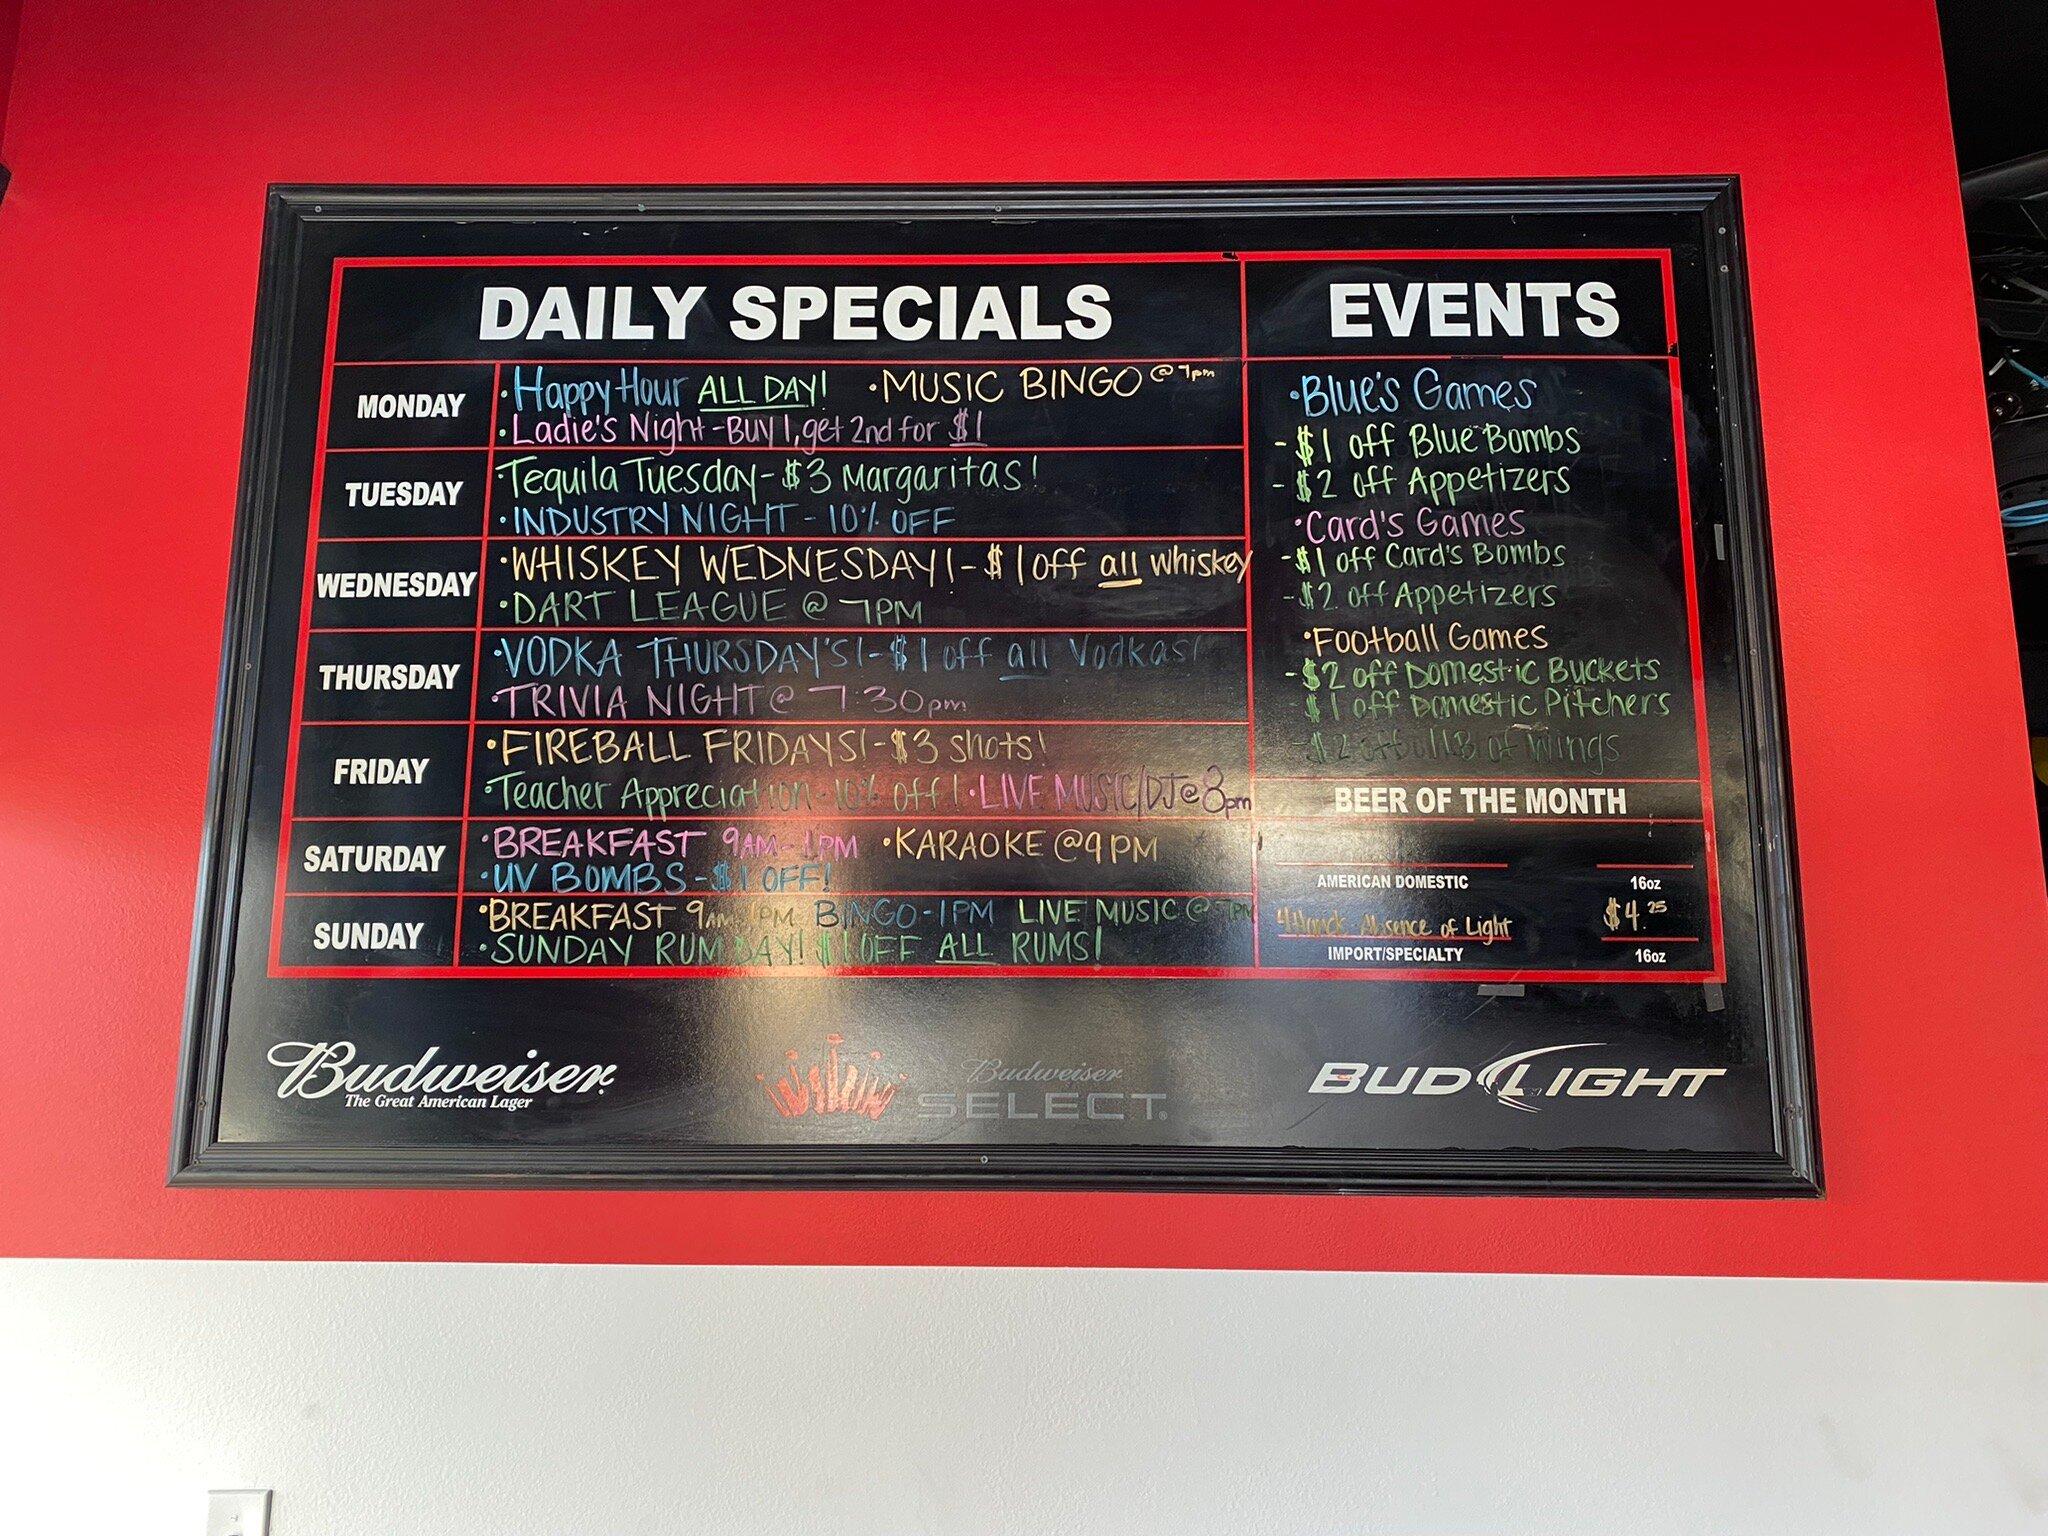 DAILY SPECIALS
MONDAY
•Happy Hour ALL DAY! •MUSIC BINGO @ 7pm
•Ladie's Night-Buy 1, get 2nd for $1
TUESDAY
•Tequila Tuesday-$3 Margaritas!
•INDUSTRY NIGHT - 10% OFF
WEDNESDAY
•WHISKEY WEDNESDAY!-$1 off all whiskey
•DART LEAGUE @ 7PM
THURSDAY
•VODKA THURSDAY'S!-$1 off all Vodkas!
•TRIVIA NIGHT @ 7:30pm
FRIDAY
•FIREBALL FRIDAYS!-$3 shots!
•Teacher Appreciation-10% off! •LIVE MUSIC/DJ@8pm
SATURDAY
•BREAKFAST 9AM-1PM •KARAOKE @9PM
•UV BOMBS-$1 OFF!
SUNDAY
•BREAKFAST 9AM-1PM BINGO-1PM LIVE MUSIC @ 7PM
•SUNDAY RUM DAY! $1 OFF ALL RUMS!
EVENTS
•Blue's Games
-$1 off Blue Bombs
-$2 off Appetizers
•Card's Games
-$1 off Card's Bombs
-$2 off Appetizers
•Football Games
-$2 off Domestic Buckets
-$1 off Domestic Pitchers
-$2 off of Wings
BEER OF THE MONTH
AMERICAN DOMESTIC 16oz
4Hands Absence of Light $4.25
IMPORT/SPECIALTY 16oz
Budweiser
The Great American Lager
Budweiser
SELECT
BUD LIGHT